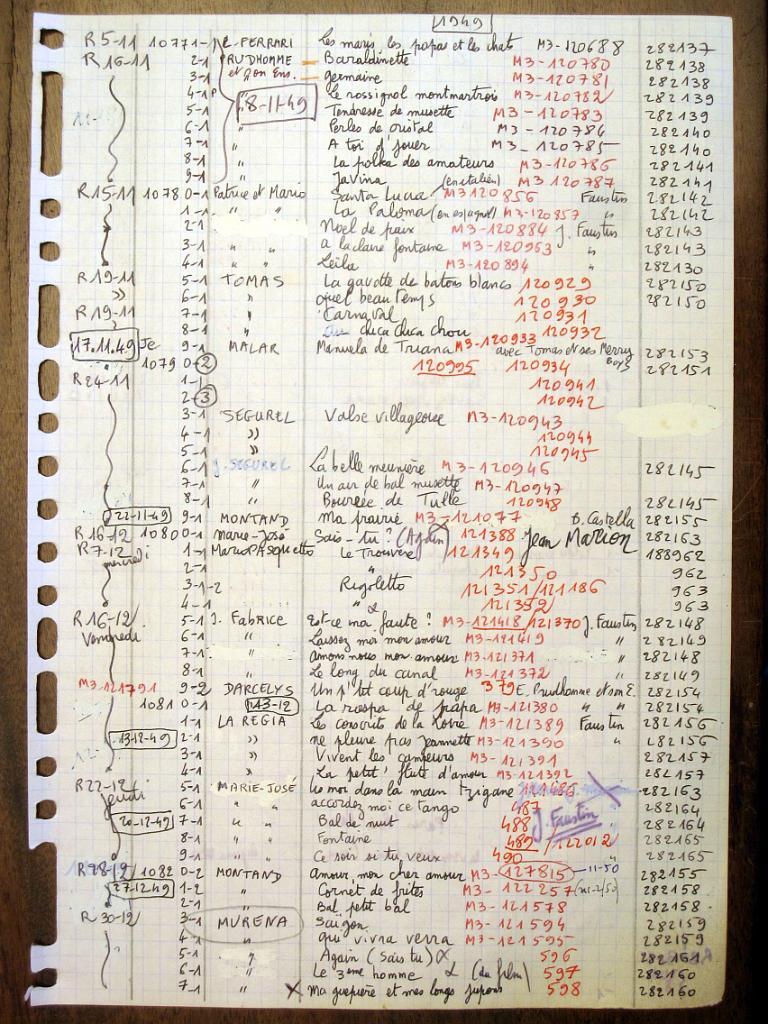 1949
R 5-11 1077 1-1 E. FERRARI Les maris, les papas et les chats M3-120688 282137
R 16-11 2-1 PRUDHOMME Baraldinette M3-120780 282138
3-1 et son Ens. germaine M3-120781 282138
4-1P " Le rossignol montmartrois M3-120782 282139
8-11-49
5-1 " Tendresse de musette M3-120783 282139
6-1 " Perles de cristal M3-120784 282140
7-1 " A toi d'jouer M3-120785 282140
8-1 " La polka des amateurs M3-120786 282141
9-1 " Javina M3-120787 282141
R 15-11 1078 0-1 Patrice et Mario Santa Lucia (en italien) M3-120856 Faustin 282142
1-1 " " La Paloma (en espagnol) M3-120857 " 282142
2-1 Noel de paix M3-120884 J. Faustin 282143
3-1 " " a la claire fontaine M3-120963 " 282143
4-1 " " Leila M3-120894 282130
R 19-11 5-1 TOMAS La gavotte des batons blancs 120929 282150
" 6-1 " quel beau temps 120930 282150
R 19-11 7-1 " Carnaval 120931
8-1 " chica chica chou 120932
17.11.49 Je 9-1 MALAR Manuela de Triana M3-120933 avec Tomas et ses Merry Boys 282153
1079 0-2 120995 120934 282151
R 24-11 1-1 120941
2-3 120942
3-1 SEGUREL Valse villageoise M3-120943
4-1 " 120944
5-1 " 120945
6-1 J. SEGUREL La belle meunière M3-120946 282145
7-1 " Un air de bal musette M3-120947
8-1 " Bourrée de Tulle 120948 282145
22-11-49 9-1 MONTAND Ma prairie M3-121077 B. Castella 282155
R 16-12 1080 0-1 Marie-José Sais-tu? (Again) 121388 Jean Marion 282163
R 7-12 1-1 Mario Pasquetto Le Trouvère 121349 188962
mercredi 2-1 " 121350 962
3-1-2 Rigoletto 121351/121186 963
4-1 " 121352 963
R 16-12 5-1 J. Fabrice Est-ce ma faute? M3-121418/121370 J. Faustin 282148
Vendredi 6-1 " Laissez moi mon amour M3-121419 " 282149
7-1 " aimons nous mon amour M3-121371 " 282148
8-1 " Le long du canal M3-121372 " 282149
M3-121791 9-2 DARCELYS Un p'tit coup d'rouge 379 E. Prudhomme et son E. 282154
1081 0-1 13-12 La raspa de papa M3-121380 " " 282154
1-1 LA REGIA Les conscrits de la Loire M3-121389 Faustin 282156
13-12-49 2-1 " ne pleure pas Jeannette M3-121390 " 282156
3-1 " Vivent les campeurs M3-121391 282157
4-1 " La petit' flute d'amour M3-121392 282157
R 22-12 5-1 MARIE-JOSÉ la moi dans la main tzigane 121486 282163
jeudi 6-1 " " accordez moi ce tango 487 282164
20-12-49 7-1 " " Bal de nuit 488 J. Faustin 282164
8-1 " " Fontaine 489/122012 282165
9-1 " " Ce soir si tu veux 490 " 282165
R 28-12 1082 0-2 MONTAND Amour, mon cher amour M3-127815 11-50 282155
27-12-49 1-2 " Cornet de frites M3-122257 282158
2-1 " Bal petit bal M3-121578 282158
R 30-12 3-1 MURENA Saïgon M3-121594 282159
4-1 " qui vivra verra M3-121595 282159
5-1 " Again (Sais tu) 596 282161
6-1 " Le 3eme homme (du film) 597 282160
7-1 " X Ma guepière et mes longs jupons 598 282160